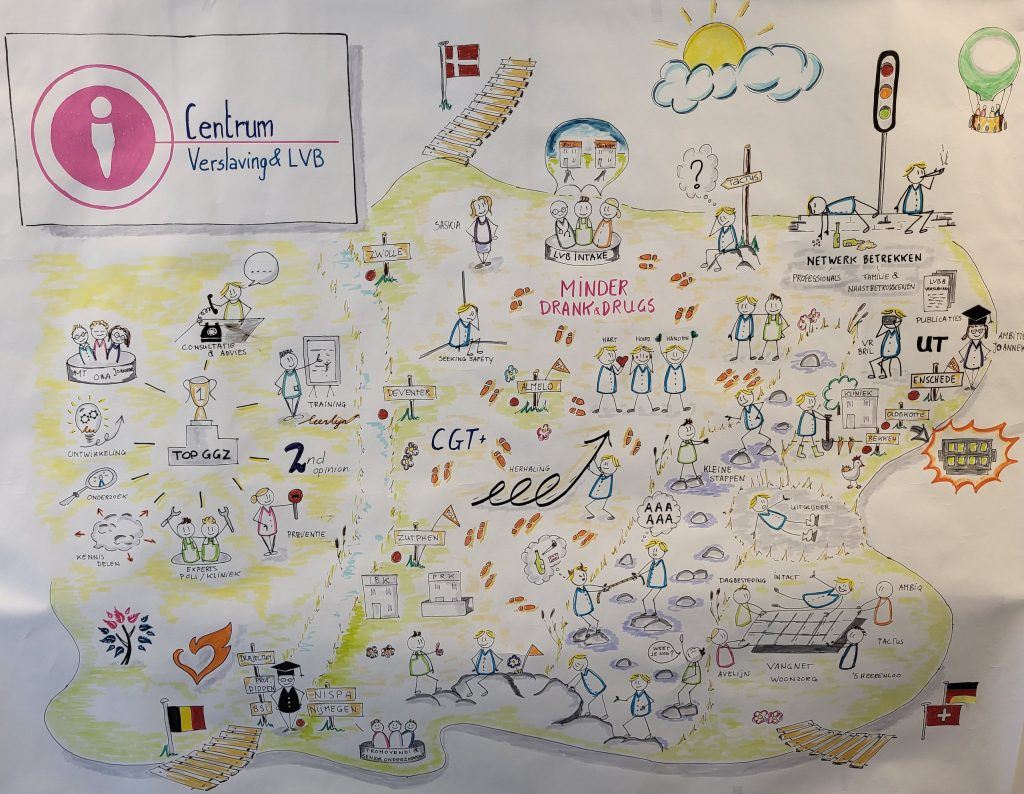 Centrum
Verslaving & LVB
SASKIA
POLI
KLINIEK
LVB INTAKE
?
TACTUS
NETWERK BETREKKEN
PROFESSIONALS
FAMILIE &
NAASTBETROKKENEN
LVB &
VERSLAVING
PUBLICATIES
ZWOLLE
....
CONSULTATIE
& ADVIES
MINDER
DRANK & DRUGS
SEEKING SAFETY
HART
HOOFD
HANDEN
VR
BRIL
UT
AMBITIE
JOANNEKE
ENSCHEDE
MT
O&A
JOANNEKE
1
TOP GGZ
TRAINING
leerlijn
DEVENTER
ALMELO
KLINIEK
OLDEKOTTE
BEKKEN
ONTWIKKELING
2nd
opinion
CGT+
HERHALING
KLEINE
STAPPEN
ONDERZOEK
KENNIS
DELEN
EXPERTS
POLI / KLINIEK
PREVENTIE
ZUTPHEN
AAA
AAA
UITGLIJDER
IBK
FRK
DAGBESTEDING
INTACT
AMBIQ
TACTUS
AVELIJN
VANGNET
WOONZORG
'S HEERENLOO
WEET
JE NOG?
TRAJECTUM
PROF.
DIDDEN
BSI
NISPA
NIJMEGEN
PROMOVENDI &
SENIOR ONDERZOEKERS